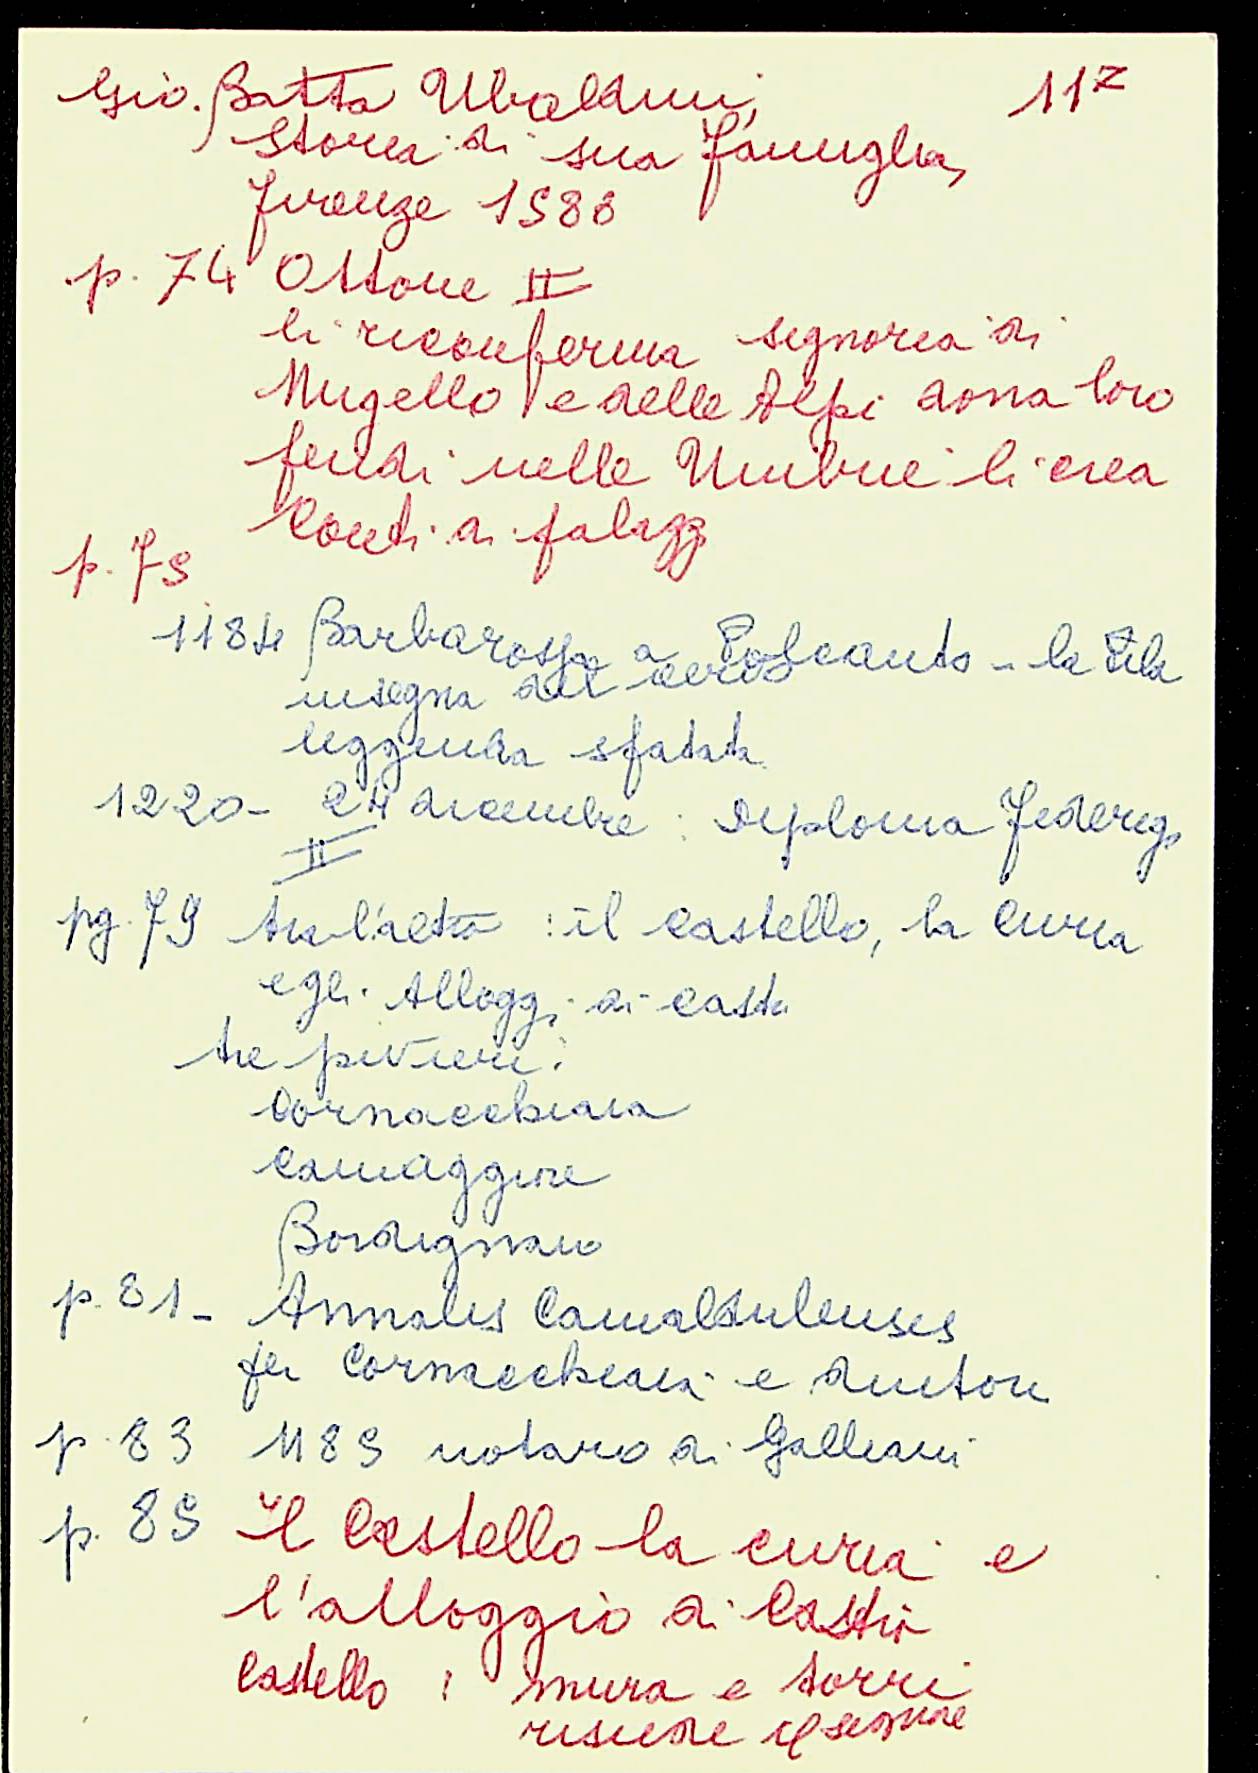 Gio. Batta Ubaldini, 11z
Storia di sua famiglia,
Firenze 1588
p. 74 Ottone II
li riconferma signoria di
Mugello e delle Alpi dona loro
feudi nelle Umbrie li crea
Conti di palazz
p. 75
1184 Barbarossa a - la
insegna del cervo
leggenda sfatata
1220- 24 dicembre: Diploma Federigo
II
pg. 79 : il castello, la Curia
e gli Alloggi di casta
tre pivieri:
Cornacchiaia
Camaggiore
Bordignano
p. 81- Annales Camaldulenses
per Cornacchiaia e
p. 83 1185 notaro di Galliani
p. 85 Il Castello la curia e
l'alloggio di Castir
Castello: mura e torri
risiede il signore